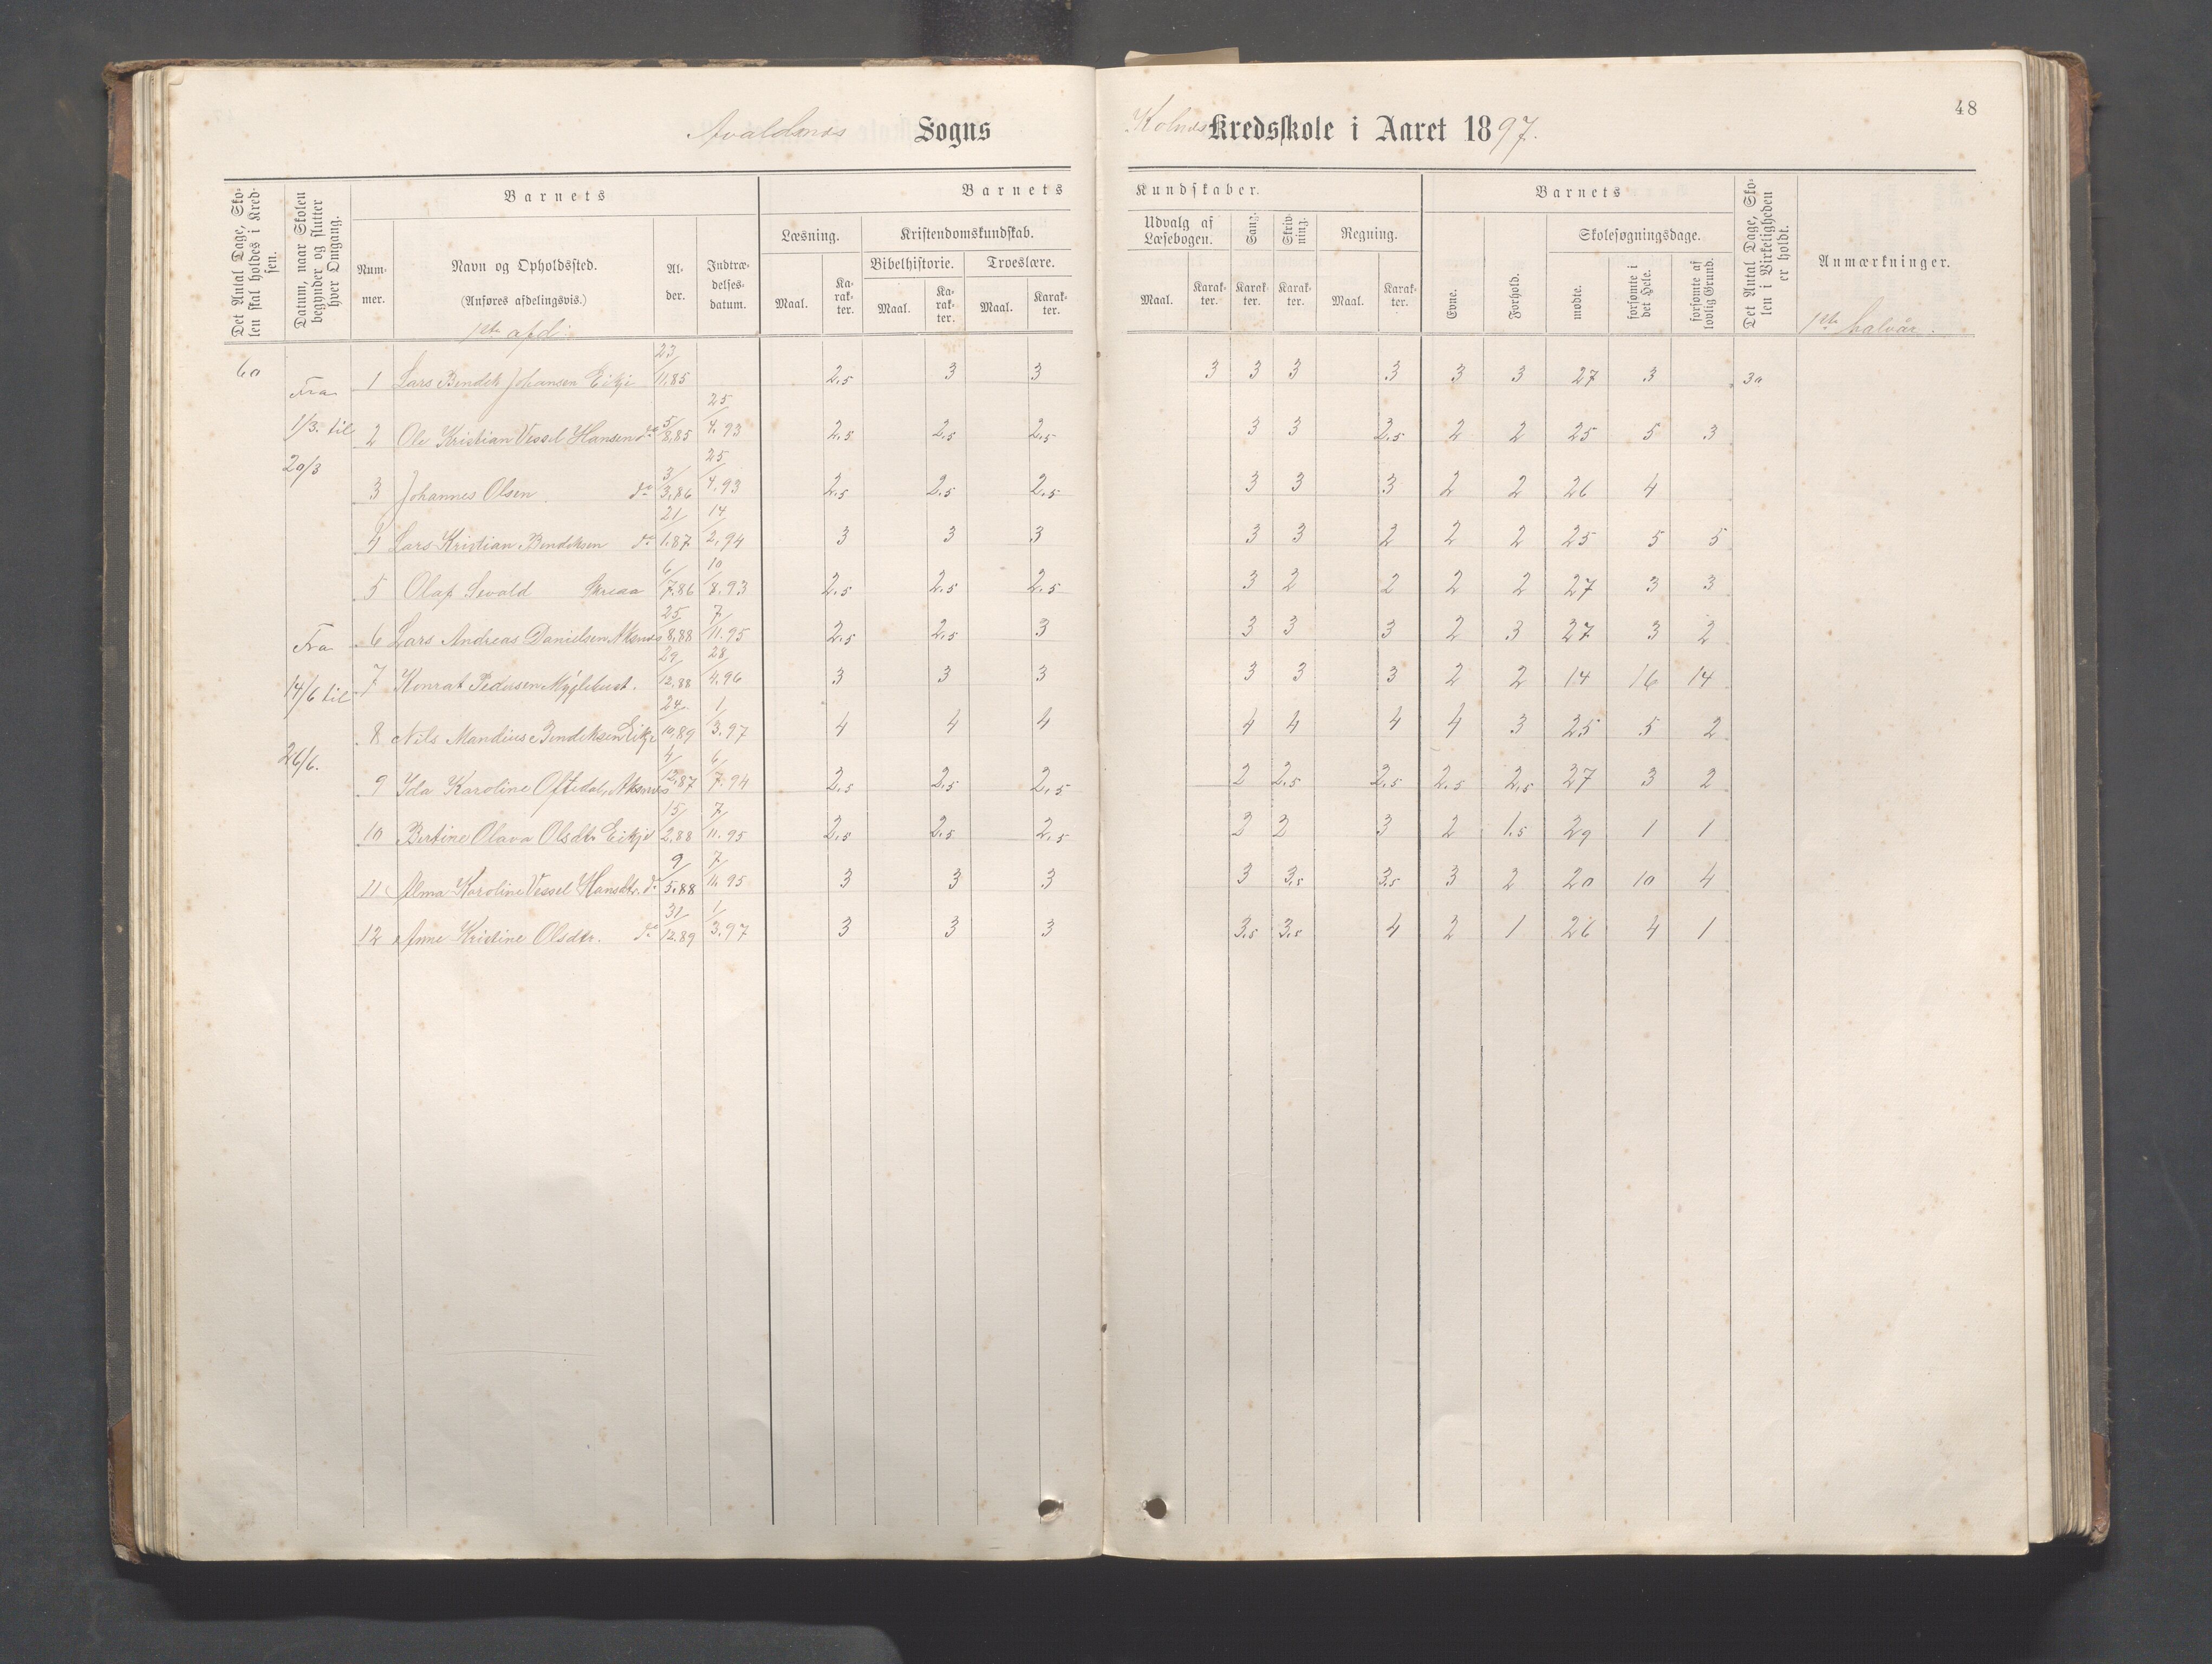 48
Avaldsnes Sogns Kolnes Kredsskole i Aaret 1897.
Det Antal Dage, Skolen skal holdes i Kredsen.
Datum, naar Skolen begynder og slutter hver Omgang.
Barnets
Nummer.
Navn og Opholdssted.
(Anføres afdelingsvis.)
1ste afd.
Alder.
Indtrædelsesdatum.
Barnets Kundskaber.
Læsning.
Maal.
Karakter.
Kristendomskundskab.
Bibelhistorie.
Maal.
Karakter.
Troeslære.
Maal.
Karakter.
Udvalg af Læsebogen.
Maal.
Karakter.
Sang.
Karakter.
Skrivning.
Karakter.
Regning.
Maal.
Karakter.
Barnets
Evne.
Forhold.
Skolesøgningsdage.
mødte.
forsømte i det Hele.
forsømte af lovlig Grund.
Det Antal Dage, Skolen i Virkeligheden er holdt.
Anmærkninger.
1ste halvår.
60
Fra 1/3. til 20/3
Fra 14/6 til 26/6.
1 Lars Bendik Johansen Eikje 23/11.85 2.5 3 3 3 3 3 3 3 3 27 3 30
2 Ole Kristian Vessel Hansen do 5/8.85 25/4.93 2.5 2.5 2.5 3 3 2.5 2 2 25 5 3
3 Johannes Olsen do 3/3.86 25/4.93 2.5 2.5 2.5 3 3 3 2 2 26 4
4 Lars Kristian Bendiksen do 21/1.87 14/2.94 3 3 3 3 3 2 2 2 25 5 5
5 Olaf Sevald 6/7.86 10/8.93 2.5 2.5 2.5 3 2 2 2 2 27 3 3
6 Lars Andreas Danielsen Aksnes 25/8.88 7/11.95 2.5 2.5 3 3 3 3 2 3 27 3 2
7 Konrat Pedersen Myglebust. 29/12.88 28/4.96 3 3 3 3 3 3 2 2 14 16 14
8 Nils Mandius Bendiksen Eikje 24/10.89 1/3.97 4 4 4 4 4 4 4 3 25 5 2
9 Ida Karoline Oftedal, Aksnes 4/12.87 6/7.94 2.5 2.5 2.5 2 2.5 2.5 2.5 2.5 27 3 2
10 Bertine Olava Olsdtr. Eikje 15/2.88 7/11.95 2.5 2.5 2.5 2 2 3 2 1.5 29 1 1
11 Alma Karoline Vessel Hansdtr. do 9/5.88 7/11.95 3 3 3 3 3.5 3.5 3 2 20 10 4
12 Anne Kristine Olsdtr. do 31/12.89 1/3.97 3 3 3 3.5 3.5 4 2 1 26 4 1